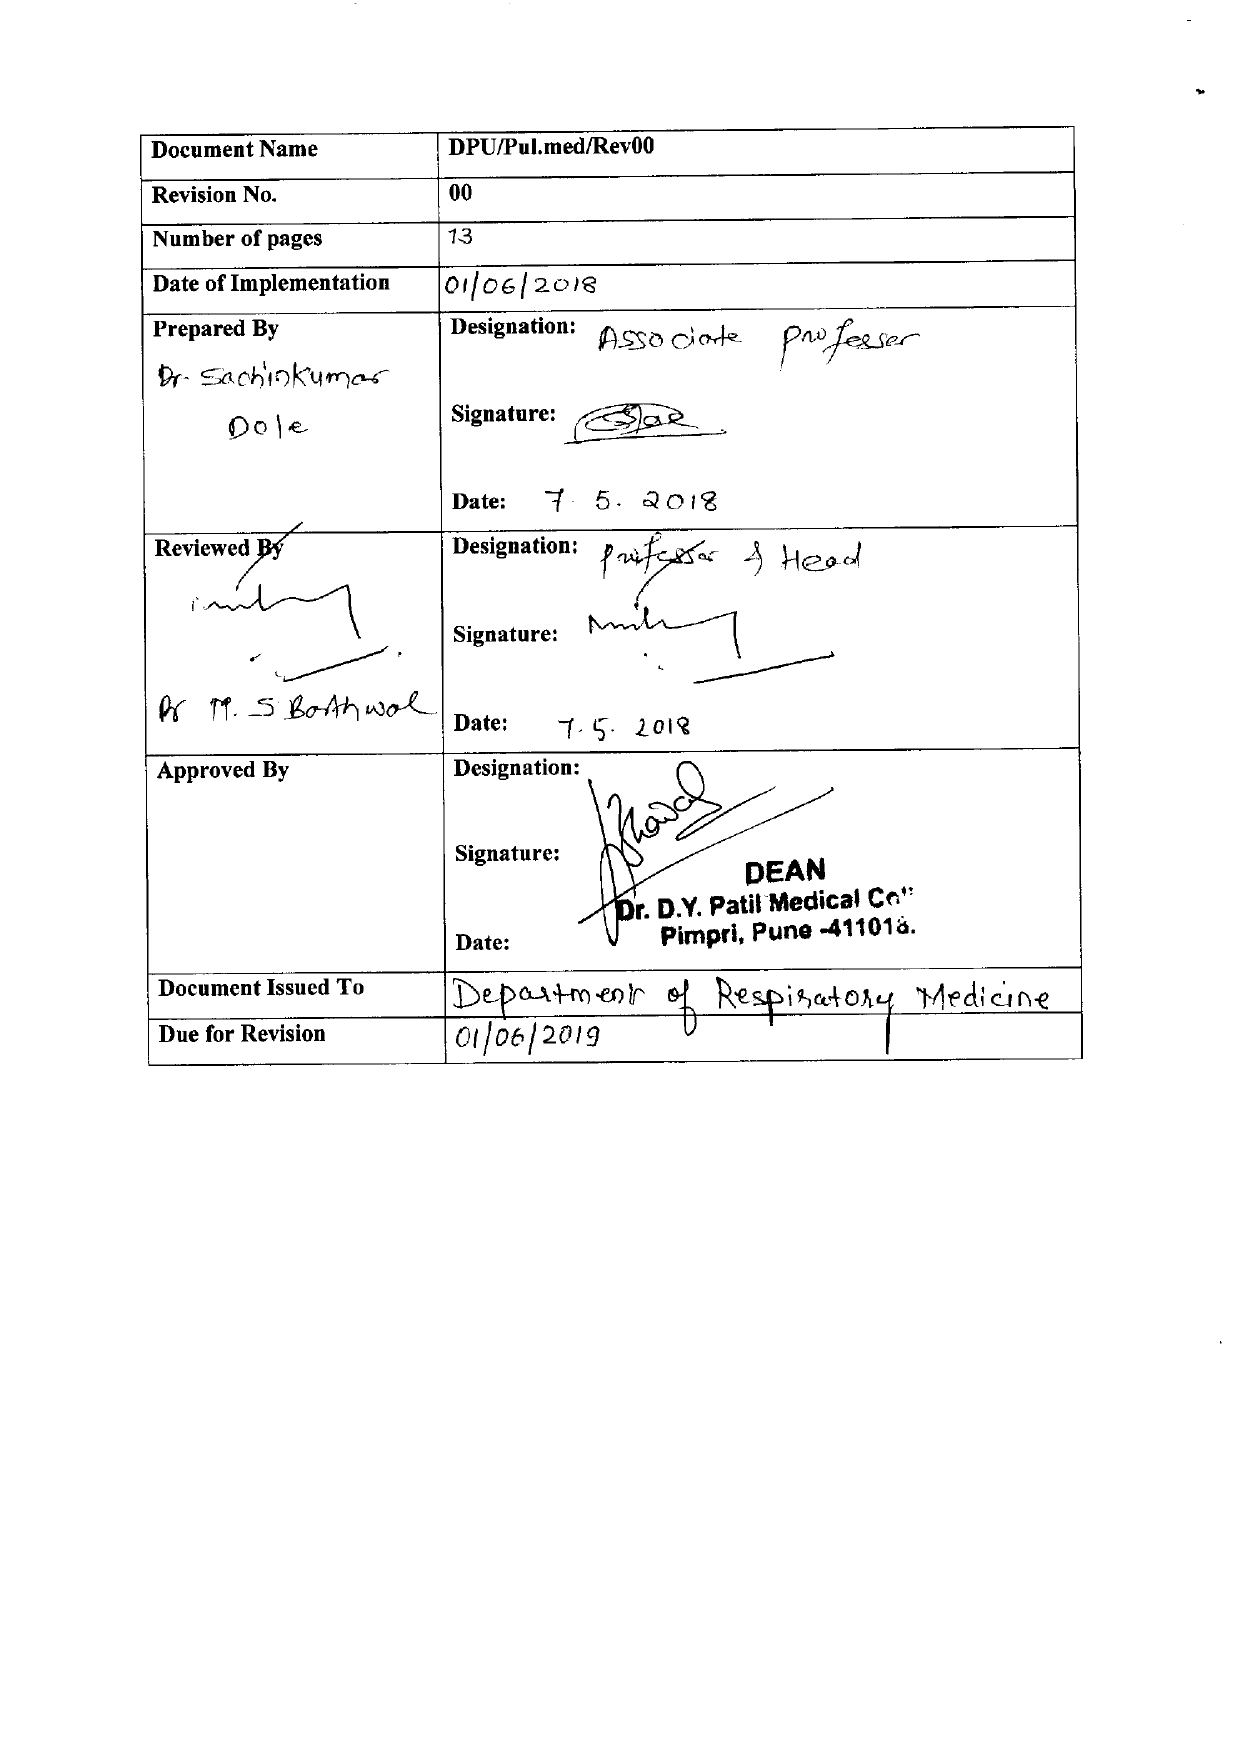 Document Name DPU/Pul.med/Rev00
Revision No. 00
Number of pages 13
Date of Implementation 01/06/2018
Prepared By Designation: Associate Professer
Dr. Sachinkumar
Dole Signature:
Date: 7. 5. 2018
Reviewed By Designation: professor & Head
Signature:
Dr M. S Barthwal Date: 7. 5. 2018
Approved By Designation:
Signature:
DEAN
Dr. D.Y. Patil Medical
Pimpri, Pune -411018.
Date:
Document Issued To Department of Respiratory Medicine
Due for Revision 01/06/2019